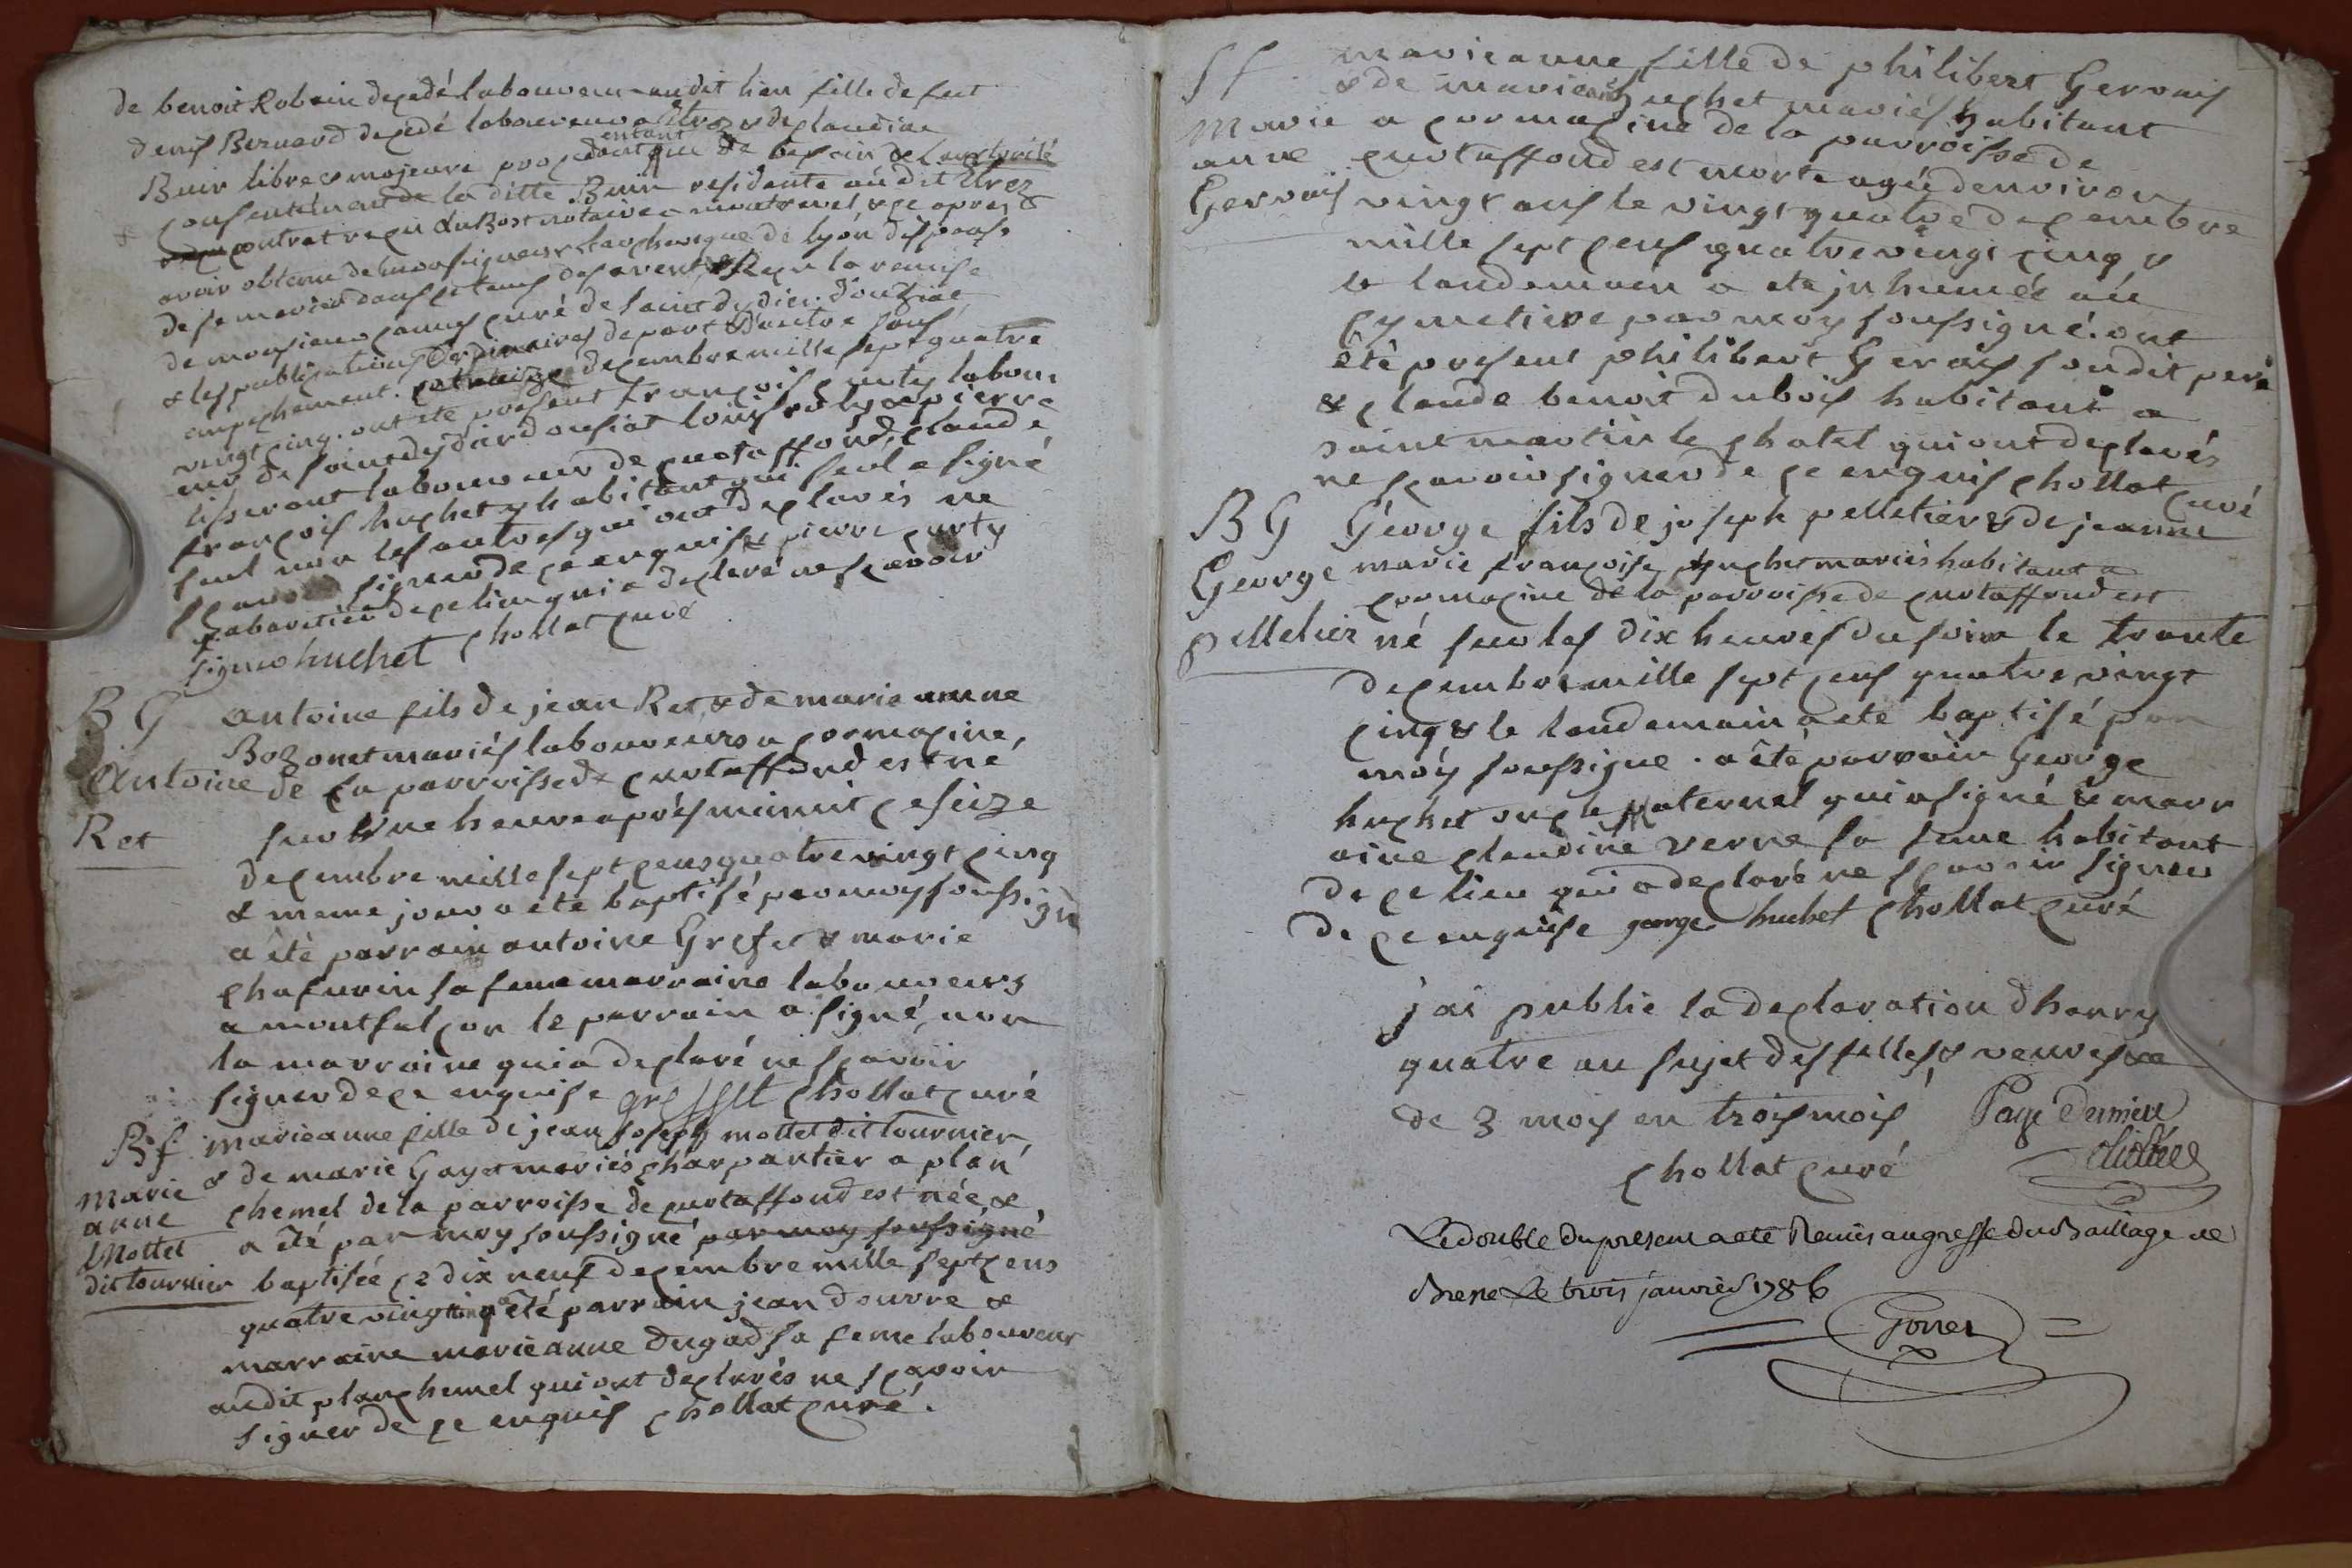 de benoit Robin decedé laboureur au dit lieu fille de feut
denis Bernard decedé laboureur a Etrez & de claudine
Buir libre & majeure procedant entant que de besoin de l'autorité
& consentement de la ditte Buir residente au dit Etrez
contrat reçu duBost notaire a montrevel & ce apres
avoir obtenu de monseigneur l'archeveque de lyon dispense
de se marier dans le tems des avents & reçu la remise
de monsieur curé de saint dydier d'oussiat
& les publications ordinaires de part & d'autre sans
empechement. ce treize decembre mille sept quatre
vingt cinq. ont ete present françois curty labou
eur de saint dydier d'oussiat louis roly & pierre
tisserant laboureur de curtaffond, claude
françois huchet y habitant qui seul a signé
seul non les autres qui ont declarés ne
sçavoir signer de ce enquis & pierre curty
cabaretier de ce lieu qui a declaré ne sçavoir
signer huchet chollat curé
B G antoine fils de jean Ret & de marie anne
Bozonet mariés laboureurs a cormacine,
Antoine de la parroisse de curtaffond est né
Ret sur une heure après minuit ce seize
decembre mille sept cens quatre vingt cinq
& meme jour a ete baptisé par moy soussigné
a été parrain antoine Grefet & marie
chafurin sa feme marraine laboureurs
a montfalcon le parrain a signé, non
la marraine qui a declaré ne sçavoir
signer de ce enquise greffet chollat curé
B f. marieanne fille de jean joseph mottet dit tournier
marie & de marie Gayet mariés charpantier a plan
anne chemel de la parroisse de curtaffond est née &
Mottet a été par moy soussigné par moy soussigné
dit tournier baptisée ce dix neuf decembre mille sept cens
quatre vingt cinq a été parrain jean douvre &
marraine marieanne Dugad sa feme laboureur
au dit planchemel qui ont declarés ne sçavoir
signer de ce enquis chollat curé.
S f. marieanne fille de philibert Gervais
& de marieanne huchet mariés habitant
Marie a cormacine de la parroisse de
anne curtaffond est morte agée denviron
Gervais vingt ans le vingt quatre decembre
mille sept cens quatre vingt cinq &
le landemain a ete inhumée au
cymetiere par moy soussigné. ont
été present philibert Gervais son dit pere
& claude benoit dubois habitant a
saint martin le chatel qui ont declarés
ne sçavoir signer de ce enquis chollat curé
B G George fils de joseph pelletier & de jeanne
George marie françoise huchet mariés habitant a
cormacine de la parroisse de curtaffond est
pelletier né sur les dix heures du soir le trante
decembre mille sept cens quatre vingt
cinq & le landemain a eté baptisé par
moy soussigné. a été parrain George
huchet oncle maternel qui a signé & marr
aine claudine verne sa feme habitant
de ce lieu qui a declaré ne sçavoir signer
de ce enquise george huchet chollat curé
j'ai publié la declaration dhenry
quatre au sujet des filles & veuves
de 3 mois en trois mois Page Derniere
chollat curé
Le double du present a eté Remis au greffe du Bailliage de
Bresse Le trois janvier 1786